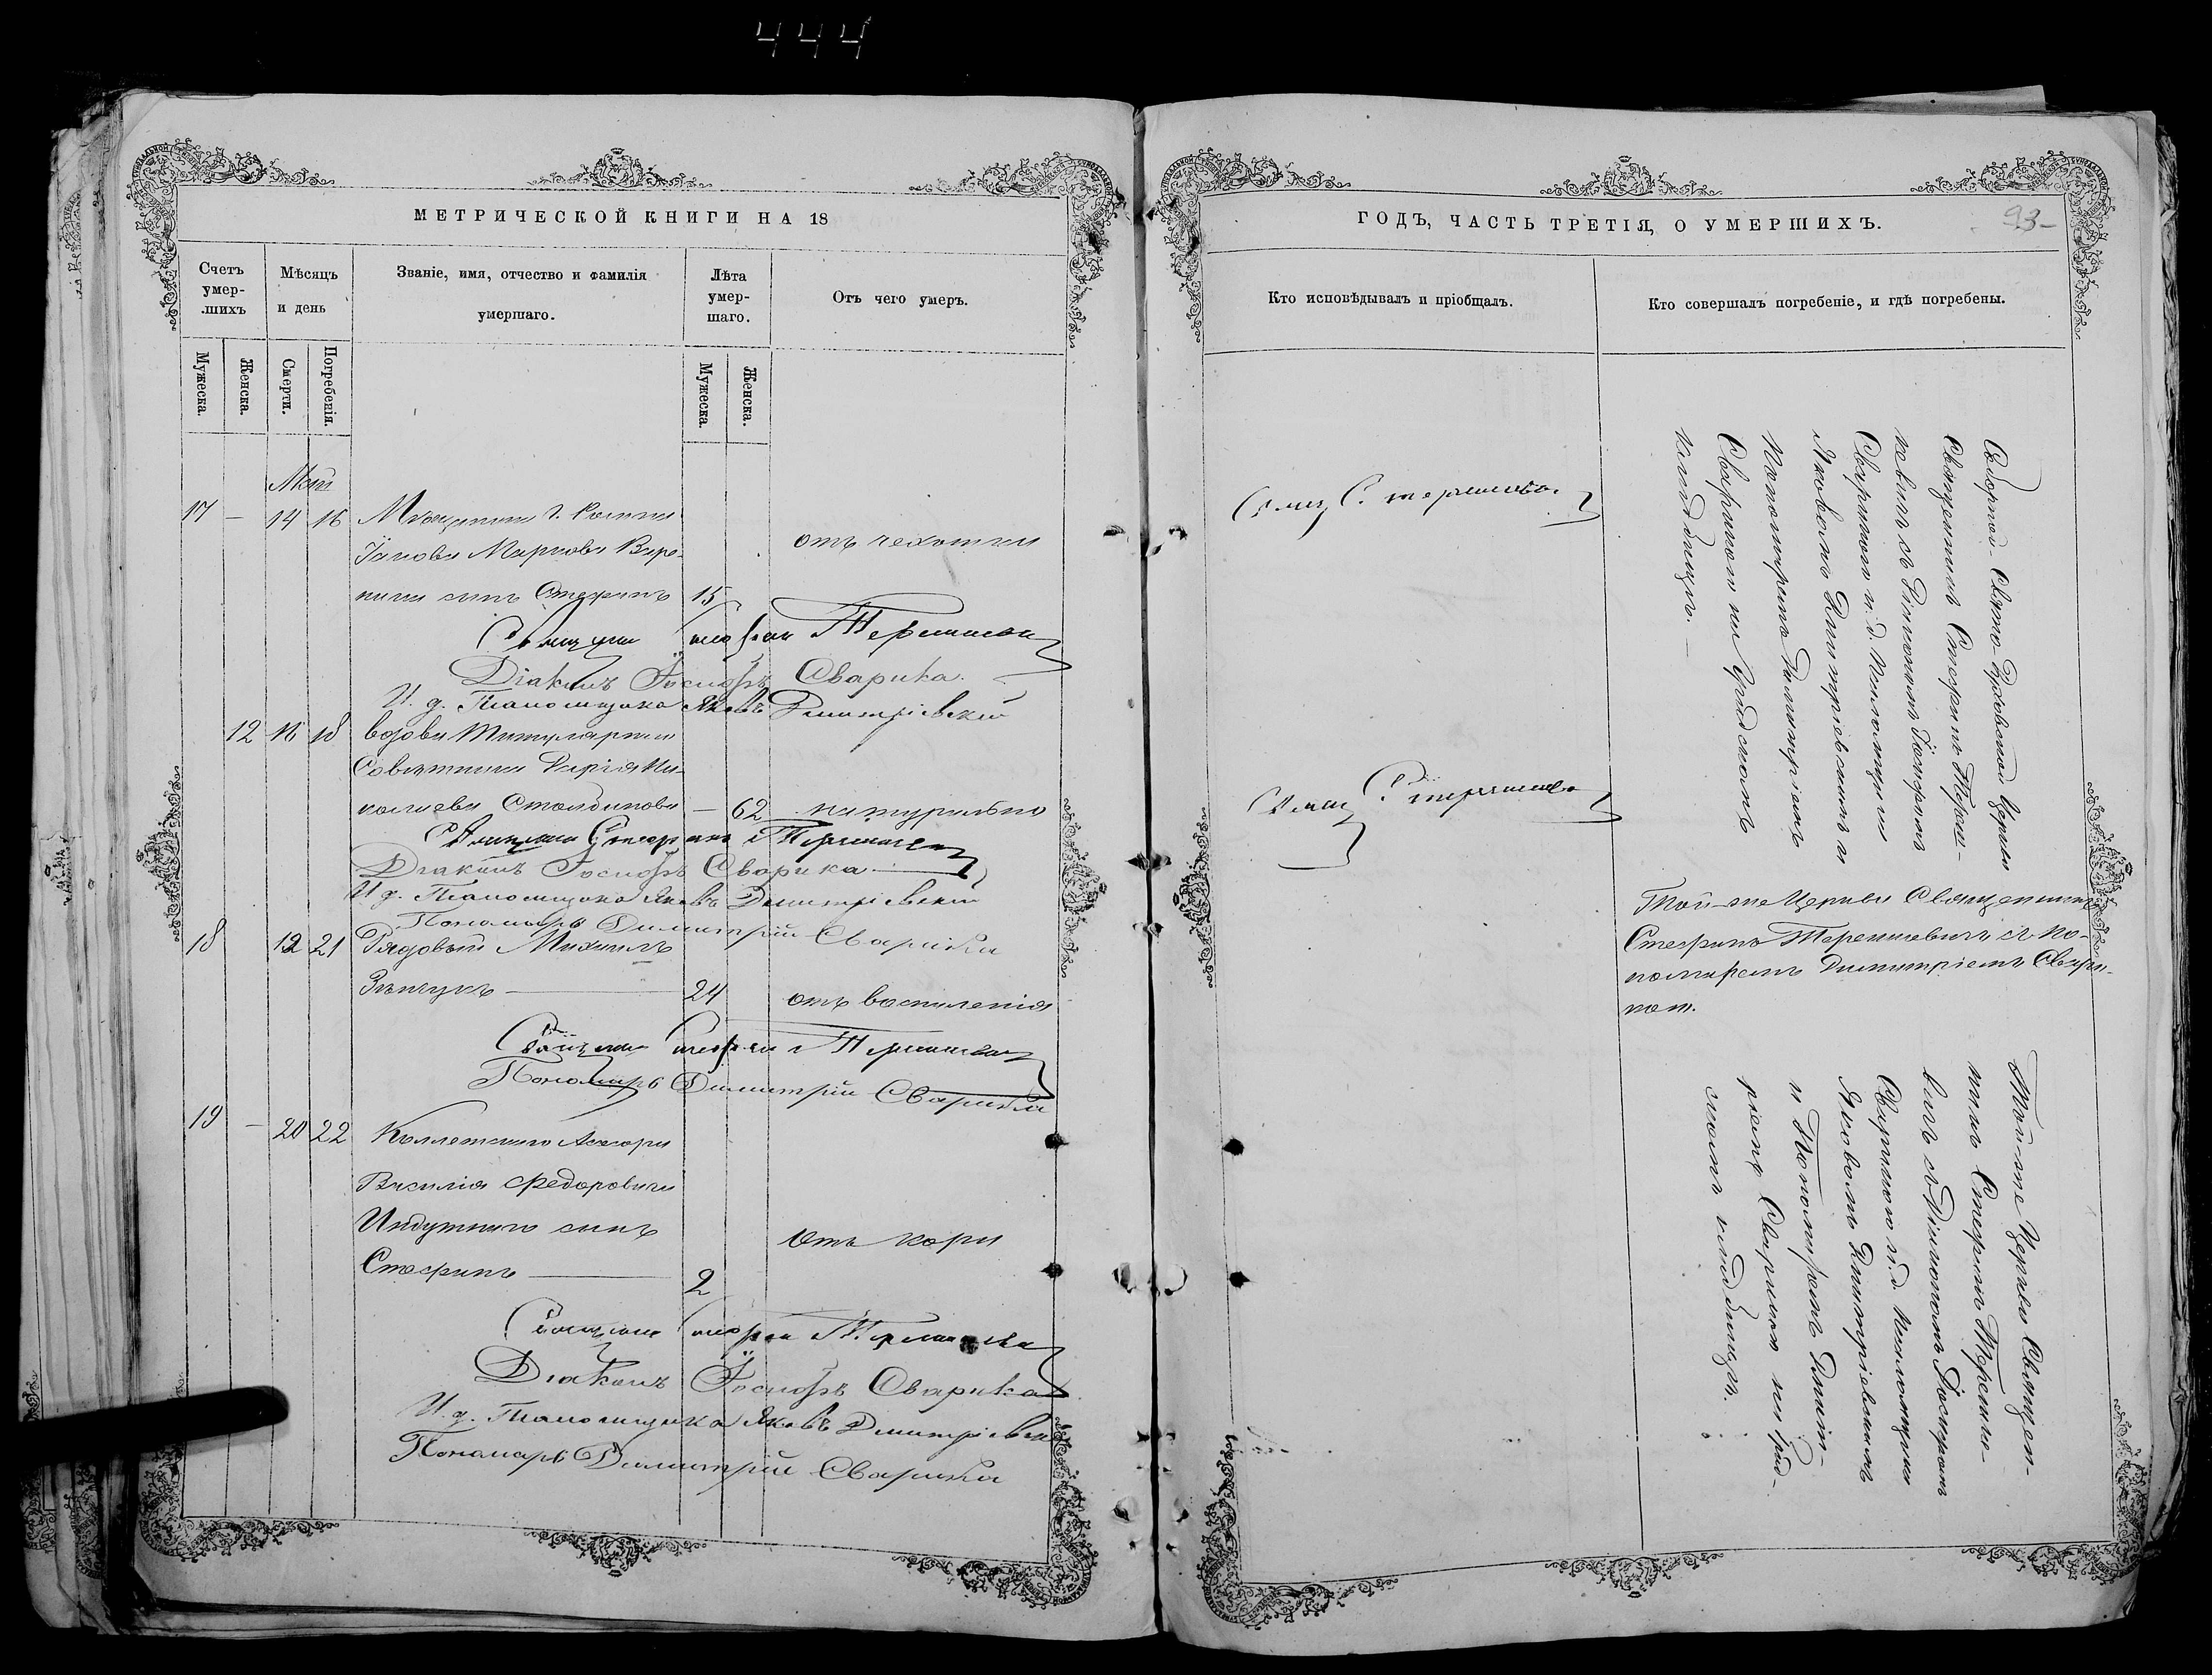 444
МЕТРИЧЕСКОЙ КНИГИ НА 18
Счетъ умер-шихъ
Мѣсяцъ и день
Званіе, имя, отчество и фамилія умершаго.
Лѣта умер-шаго.
Отъ чего умеръ.
Мужеска.
Женска.
Смерти.
Погребенія.
Мужеска.
Женска.
Май
17 – 14 16 Мѣщанина г.
Іакова Маркова
сынъ Стефанъ 15 отъ чахотки
Священникъ Стефанъ Терешкевичъ
Діаконъ Іосифъ Сварика.
И. д. Псаломщика Яковъ Дмитріевскій
12 16 18 вдова Титулярнаго
Совѣтника Дарія Ни-
колаева – 62 натурально
Священникъ Стефанъ Терешкевичъ
Діаконъ Іосифъ Сварика
И. д. Псаломщика Яковъ Дмитріевскій
Пономарь Димитрій Сварика
18 19 21 Рядовый Михаилъ
24 отъ воспаленія
Священникъ Стефанъ Терешкевичъ
Пономарь Димитрій Сварика
19 – 20 22 Коллежскаго Асесора
Василія Федоровича
сынъ
Стефанъ 2 отъ кори
Священникъ Стефанъ Терешкевичъ
Діаконъ Іосифъ Сварика
И. д. Псаломщика Яковъ Дмитріевскій
Пономарь Димитрій Сварика
ГОДЪ, ЧАСТЬ ТРЕТІЯ, О УМЕРШИХЪ.
93
Кто исповѣдывалъ и пріобщалъ.
Кто совершалъ погребеніе, и гдѣ погребены.
Свящ. С. Терешкевичъ
Соборной Свято-Духовской Церкви
Священникъ Стефанъ Тереш-
кевичъ съ Діакономъ Іосифомъ
Сварикою и. д. Псаломщика
Яковомъ Дмитріевскимъ и
Пономаремъ Димитріемъ
Сварикою на градскомъ
кладбищѣ. –
Свящ. С. Терешкевичъ
Той-же Церкви Священникъ
Стефанъ Терешкевичъ съ По-
номаремъ Димитріемъ Свари-
кою.
Той-же Церкви Священ-
никъ Стефанъ Терешке-
вичъ съ Діакономъ Іосифомъ
Сварикою и. д. Псаломщика
Яковомъ Дмитріевскимъ
и Пономаремъ Димит-
ріемъ Сварикою на град-
скомъ кладбищѣ.